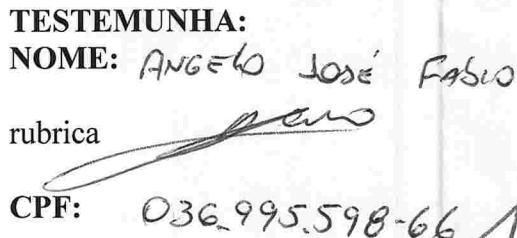 TESTEMUNHA:
NOME: ANGELO JOSÉ FABIO
rubrica
CPF: 036.995.598-66